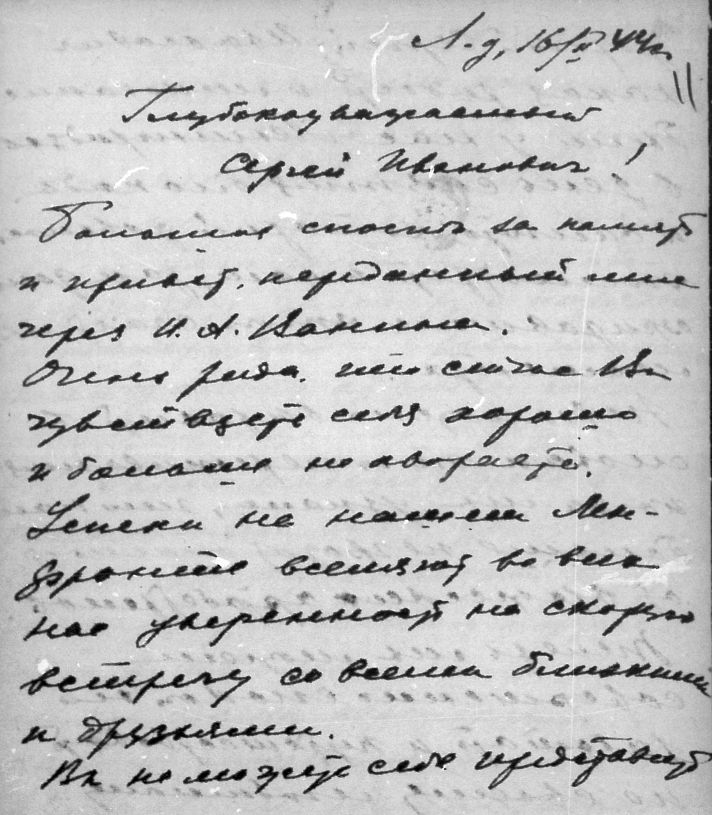 Л-д, 16/II 44 г.
11
Глубокоуважаемый
Сергей Иванович!
Большое спасибо за память
и привет, переданный мне
через И. А. Ванина.
Очень рада, что сейчас Вы
чувствуете себя хорошо
и больше не хвораете.
Успехи на нашем Лен-
фронте вселяют во всех
нас уверенность на скорую
встречу со всеми близкими
и друзьями.
Вы не можете себе представить